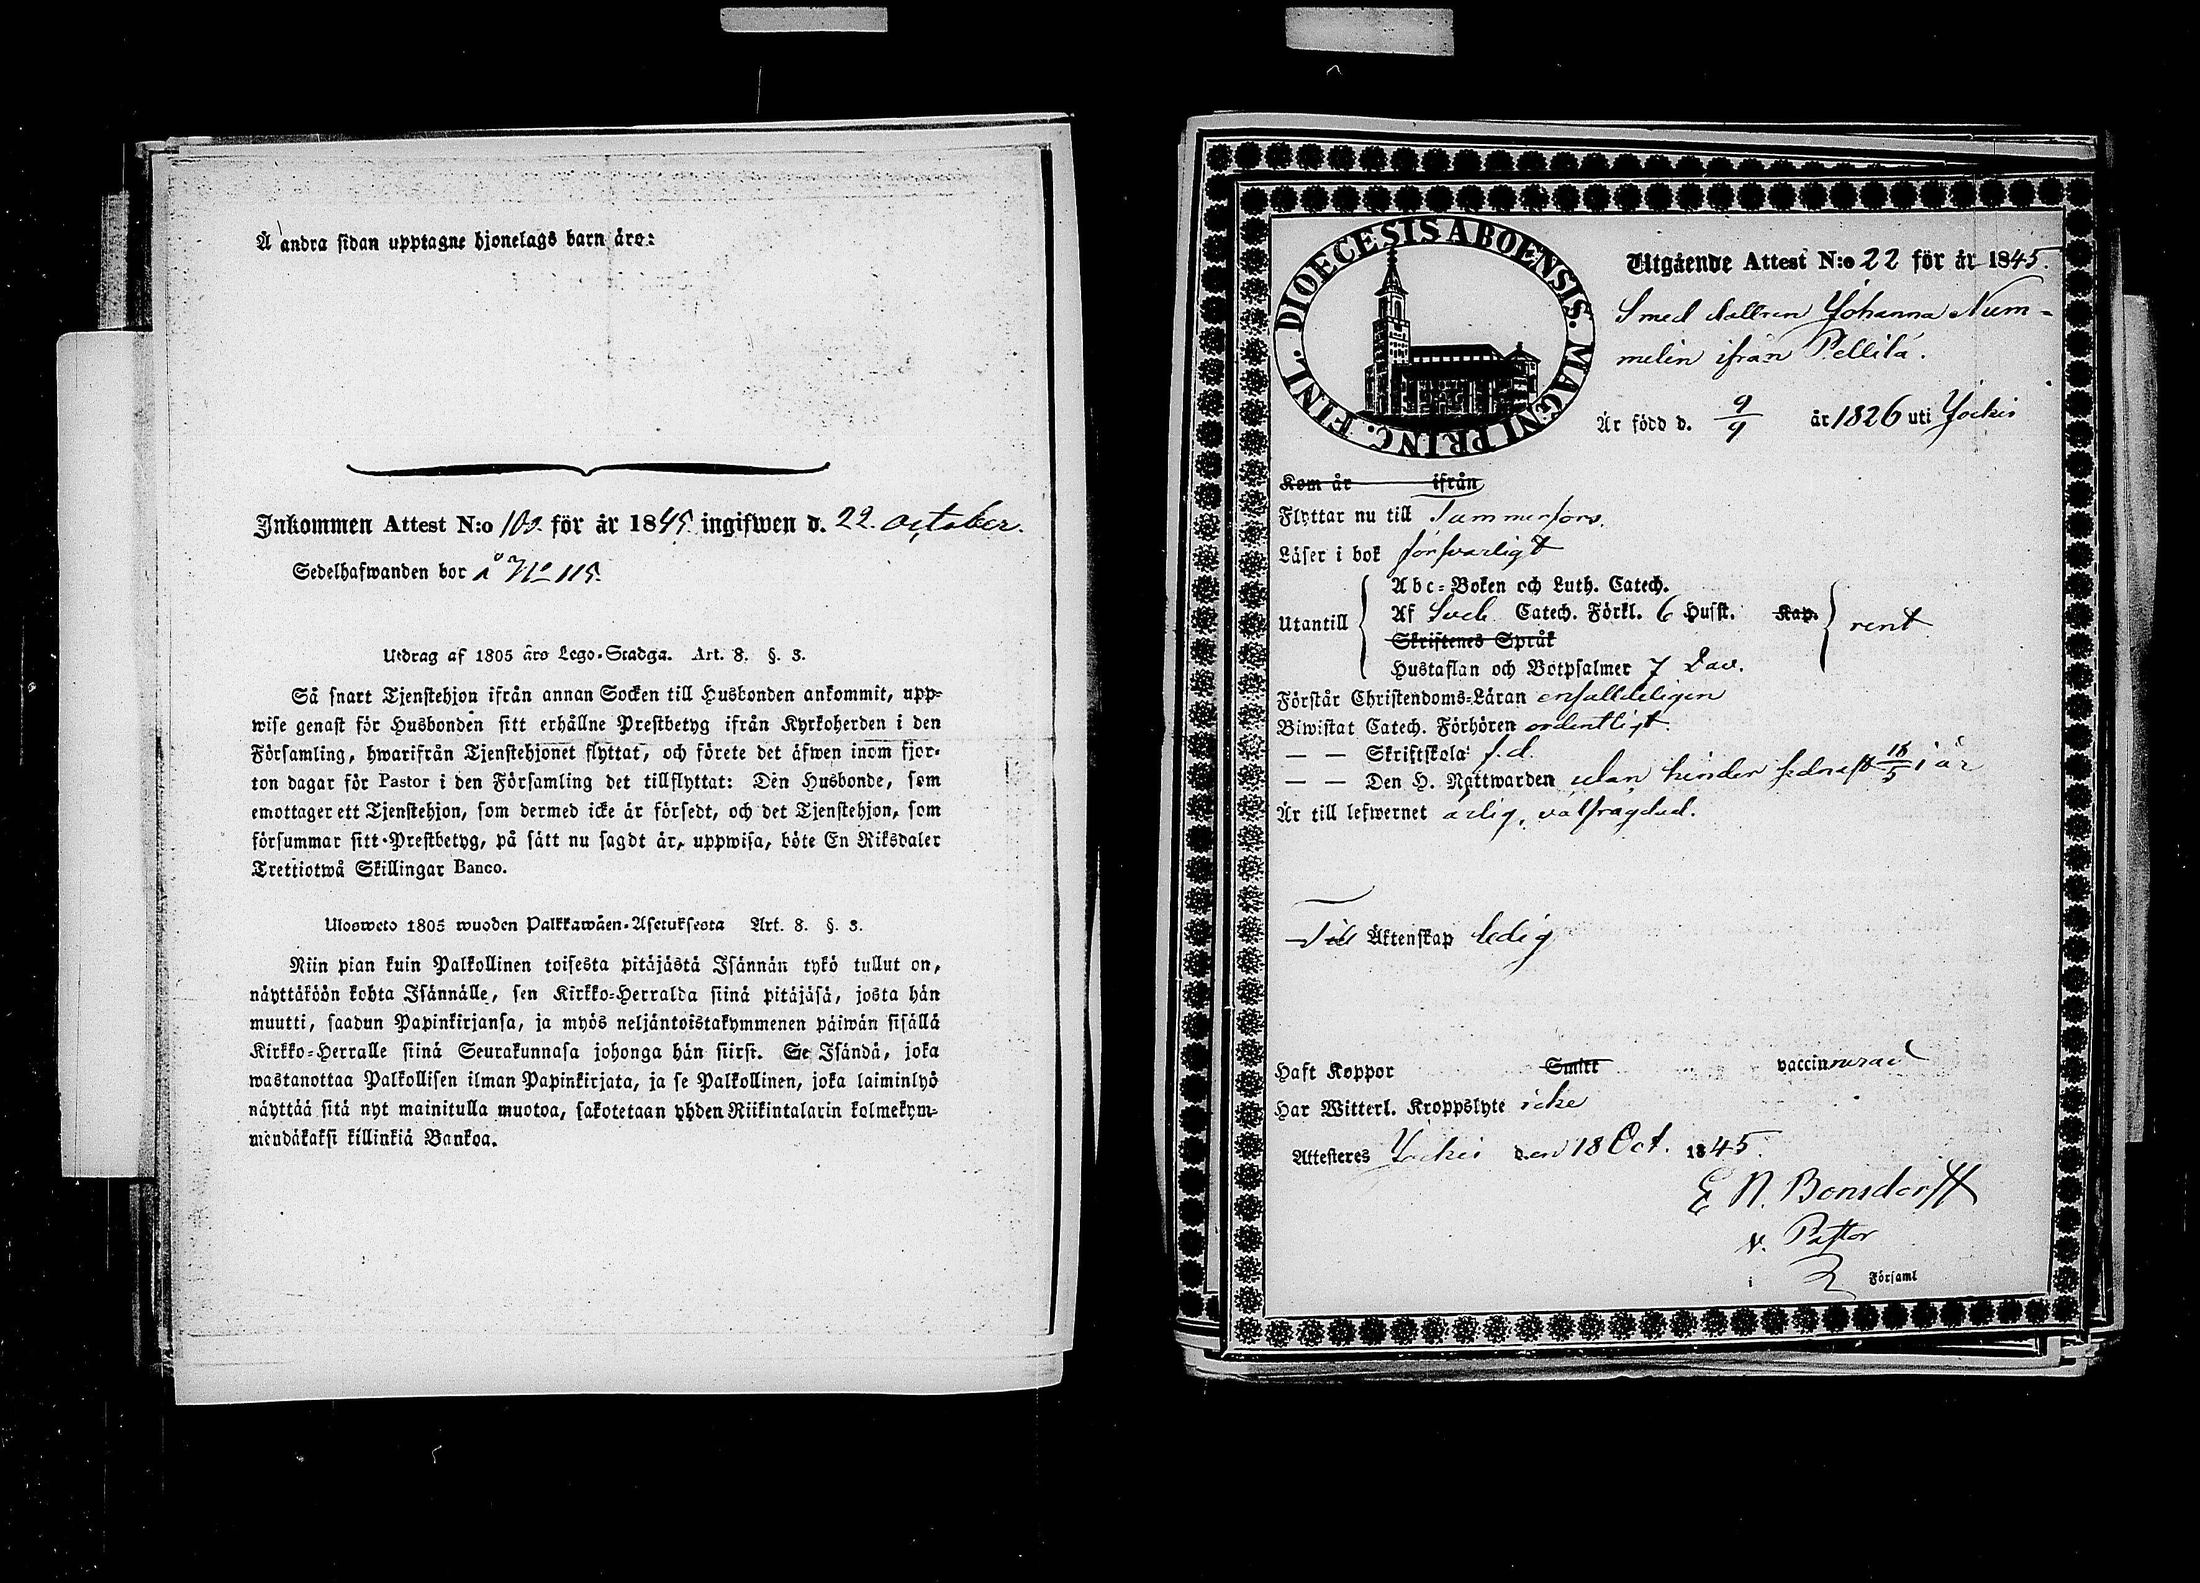 Å andra sidan upptagne hjonelags barn äro:
Inkommen Attest N:o 100. för år 1845. ingifwen d. 22. october.
Sedelhafwanden bor å No 115.
Utdrag af 1805 års Lego-Stadga. Art. 8. §. 3.
Så snart Tjenstehjon ifrån annan Socken till Husbonden ankommit, upp-
wise genast för Husbonden sitt erhållne Prestbetyg ifrån Kyrkoherden i den
Församling, hwarifrån Tjenstehjonet flyttat, och förete det äfwen inom fjor-
ton dagar för Pastor i den Församling det tillflyttat: Den Husbonde, som
emottager ett Tjenstehjon, som dermed icke är försedt, och det Tjenstehjon, som
försummar sitt Prestbetyg, på sätt nu sagdt är, uppwisa, böte En Riksdaler
Trettiotwå Skillingar Banco.
Ulosweto 1805 wuoden Palkkawäen-Asetuksesta Art. 8. §. 3.
Niin pian kuin Palkollinen toisesta pitäjästä Isännän tykö tullut on,
näyttäköön kohta Isännälle, sen Kirkko-Herralda siinä pitäjäsä, josta hän
muutti, saadun Papinkirjansa, ja myös neljäntoistakymmenen päiwän sisällä
Kirkko-Herralle siinä Seurakunnasa johonga hän siirsi. Se Isändä, joka
wastanottaa Palkollisen ilman Papinkirjata, ja se Palkollinen, joka laiminlyö
näyttää sitä nyt mainitulla muotoa, sakotetaan yhden Riikintalarin kolmekym-
mendäkaksi killinkiä Bankoa.
DIOECESIS ABOENSIS. MAGNI PRINC. FINL.
Utgående Attest N:o 22 för år 1845.
Smed dottren Johanna Num-
melin ifrån Pellilä.
Är född d. 9/9 år 1826 uti Jockis
Kom år ifrån
Flyttar nu till Tammerfors.
Läser i bok försvarligt
Abc-Boken och Luth. Catech.
Utantill Af Sveb. Catech. Förkl. 6 Husst. Kap. rent
Skriftenes Språk
Hustaflan och Botpsalmer 7 Dav.
Förstår Christendoms-Läran enfalldeligen
Biwistat Catech. Förhören ordentligt.
— — Skriftskola f.d.
— — Den H. Nattwarden utan hinder sednast 18/5 i år
Är till lefwernet ärlig, välfrägdad.
Till Äktenskap ledig
Haft Koppor Smitt vaccinnerad
Har Witterl. Kroppslyte icke
Attesteres Jockis den 18 Oct. 1845.
E N. Bonsdorff
v. Pastor
i Församl